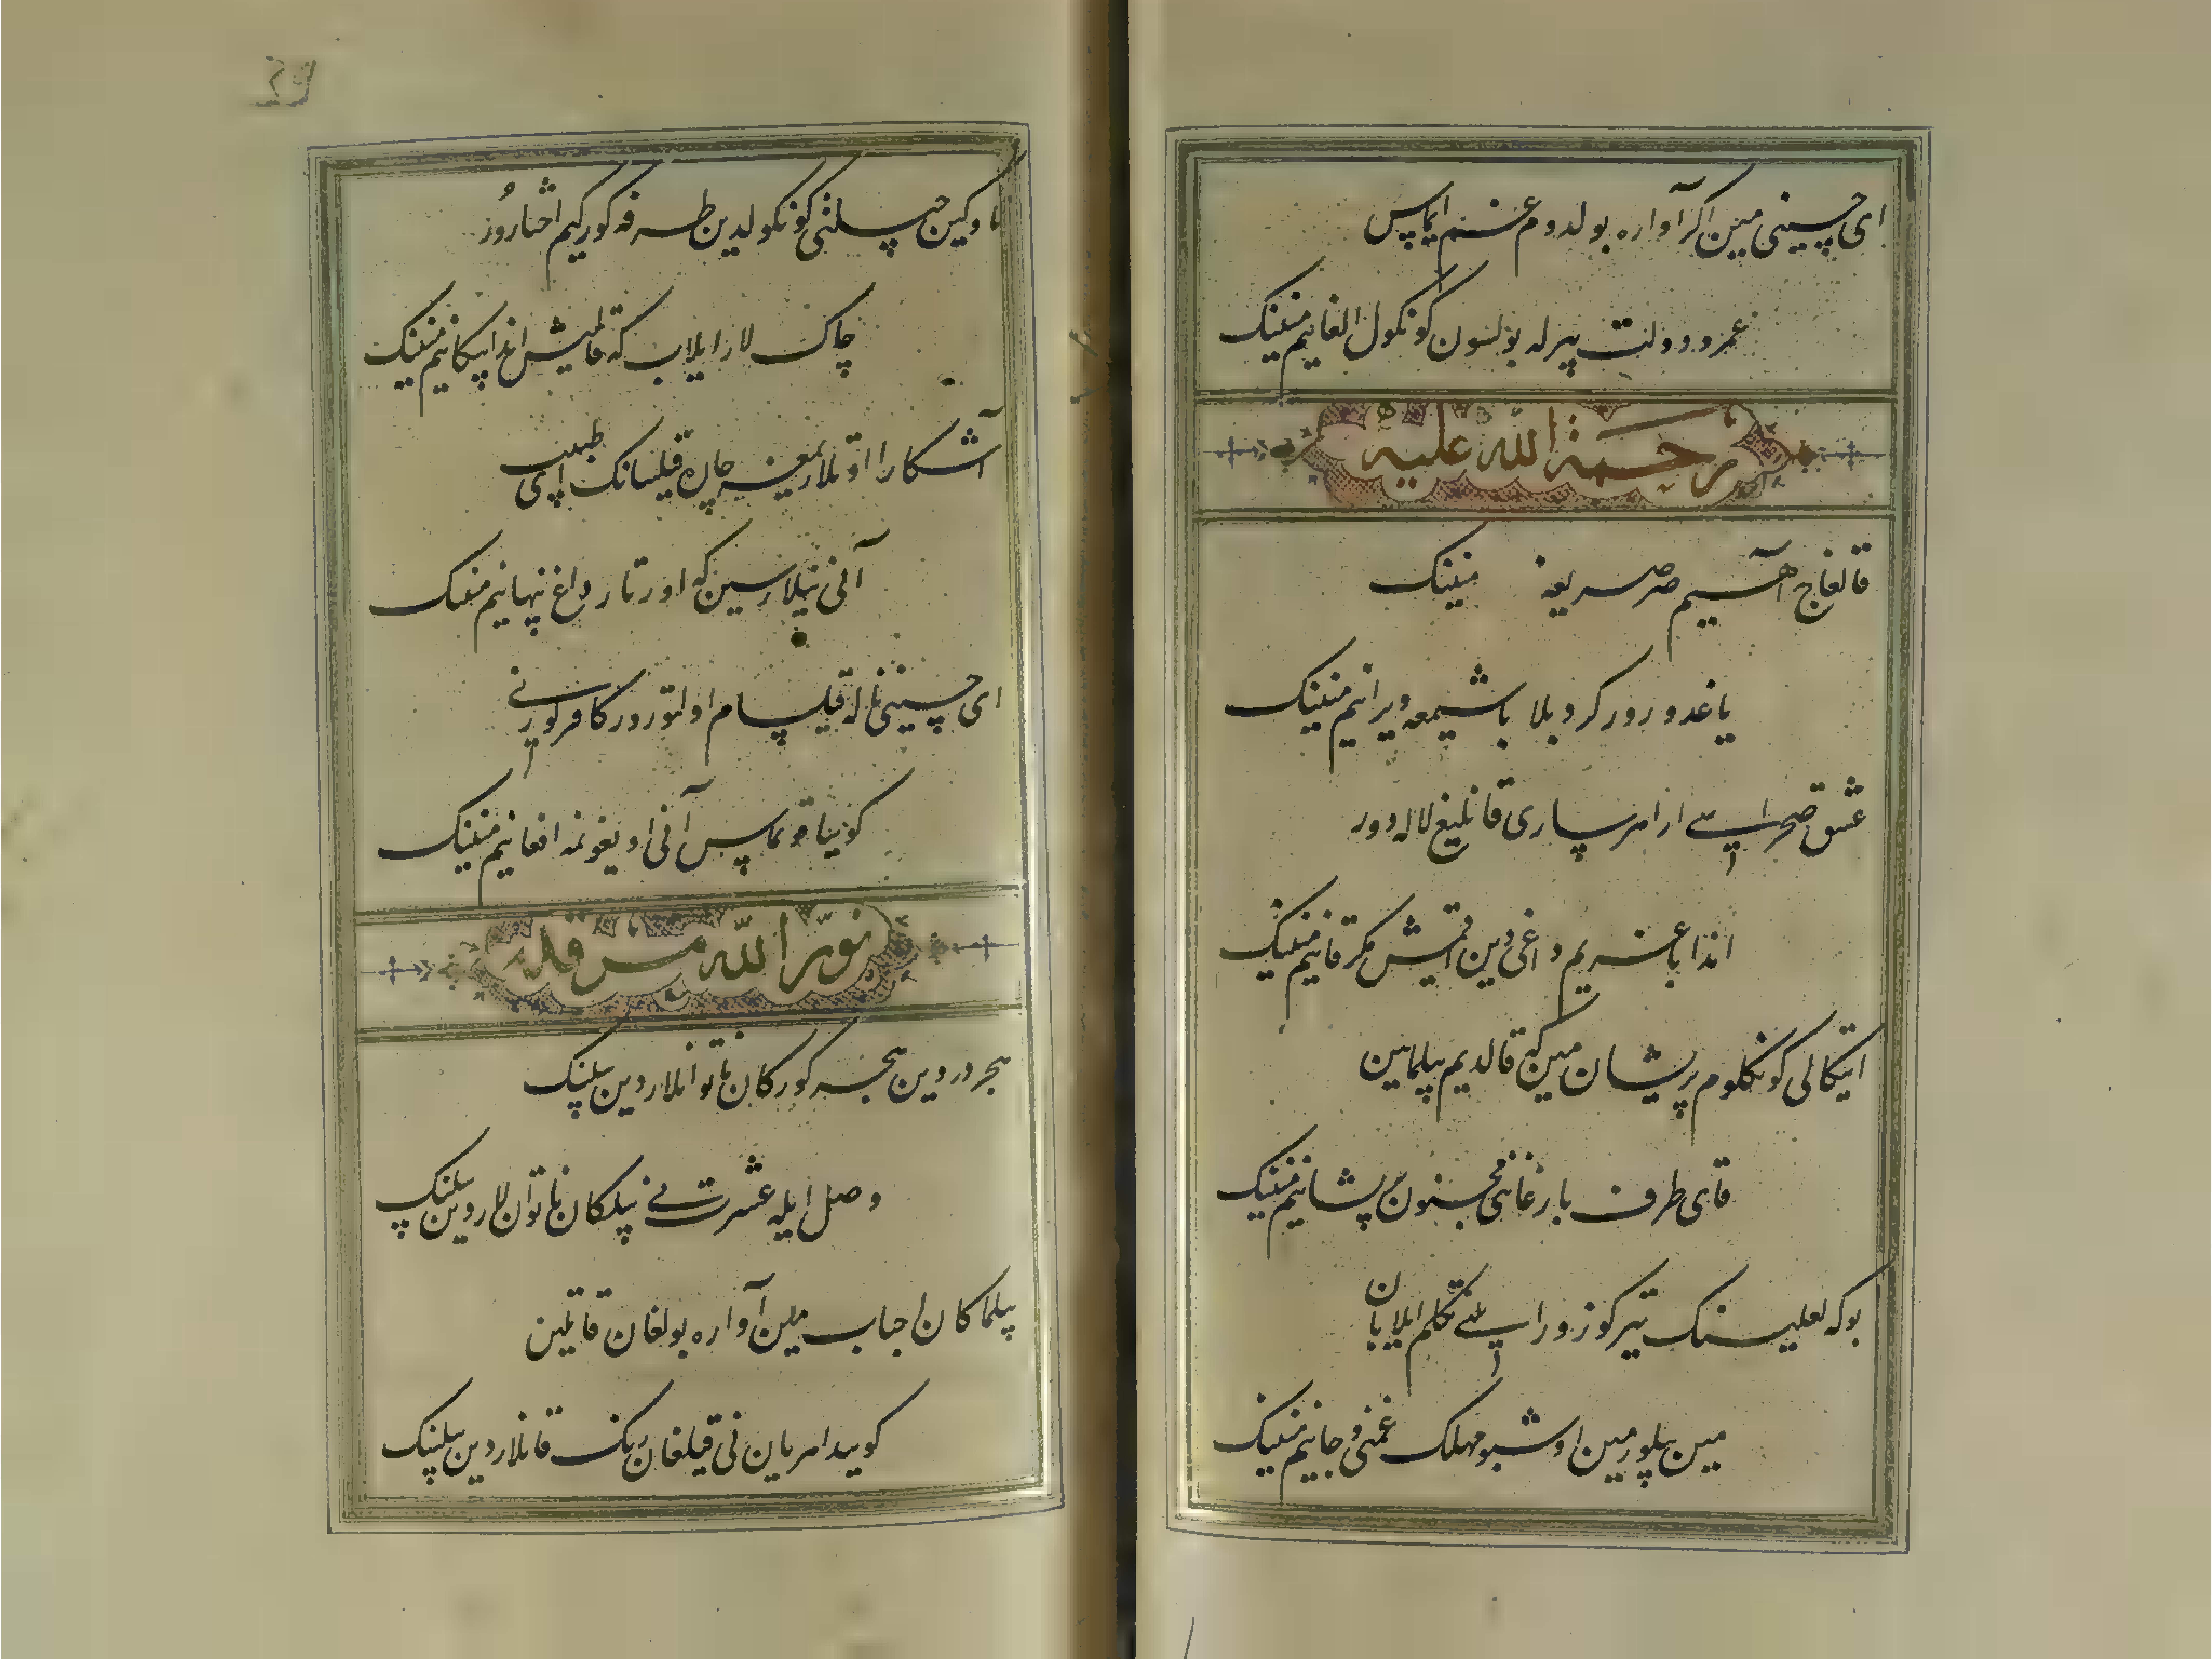 ای حسینی مین اکر آواره بولدوم غم ایماس
عمر و دولت بیرله بولسون کونکول آلغانیم مننینک
رحمة الله علیه
قالغاچ آهیم صرصریعه مننینک
یاغدورور کرد بلا باشیمعه ویرانیم مننینک
عشق صحراسی ارا هر ساری قانلیغ لاله دور
اندا باغریم داغی دین تامیش مکر قانیم مننینک
ایتکالی کونکلوم پریشان مین که قالدیم بیلماین
قای طرف بارغای مجنون پریشانیم مننینک
بوکه لعلینک تیرکوزور ایلنی تکلم ایلابان
مین بیلورمین اوشبو مهلک غمنی و جانیم مننینک
ناوکین چیلنی کونکولدین طرفه کورکیم اختارور
چاک لار ایلاب که قالمیش اندا پیکانیم مننینک
آشکارا اوتلاریمغه چاره قیلسانک ای طبیب
آنی نیلارسین که اورتار داغ پنهانیم مننینک
ای حسینی ناله قیلسام اولتورور کافر کوزی
کوییا قویماس آنی اویغونمه افغانیم مننینک
نور الله مرقده
هجر دردین هجر کورکان ناتوانلاردین بیلینک
وصل ایله عشرت نی بیلکان ناتوان لاردین بیلینک
بیلماکان احباب مین آواره بولغان قاتلین
کوییدا هر یان نی قیلغان رنک قانلاردین بیلینک